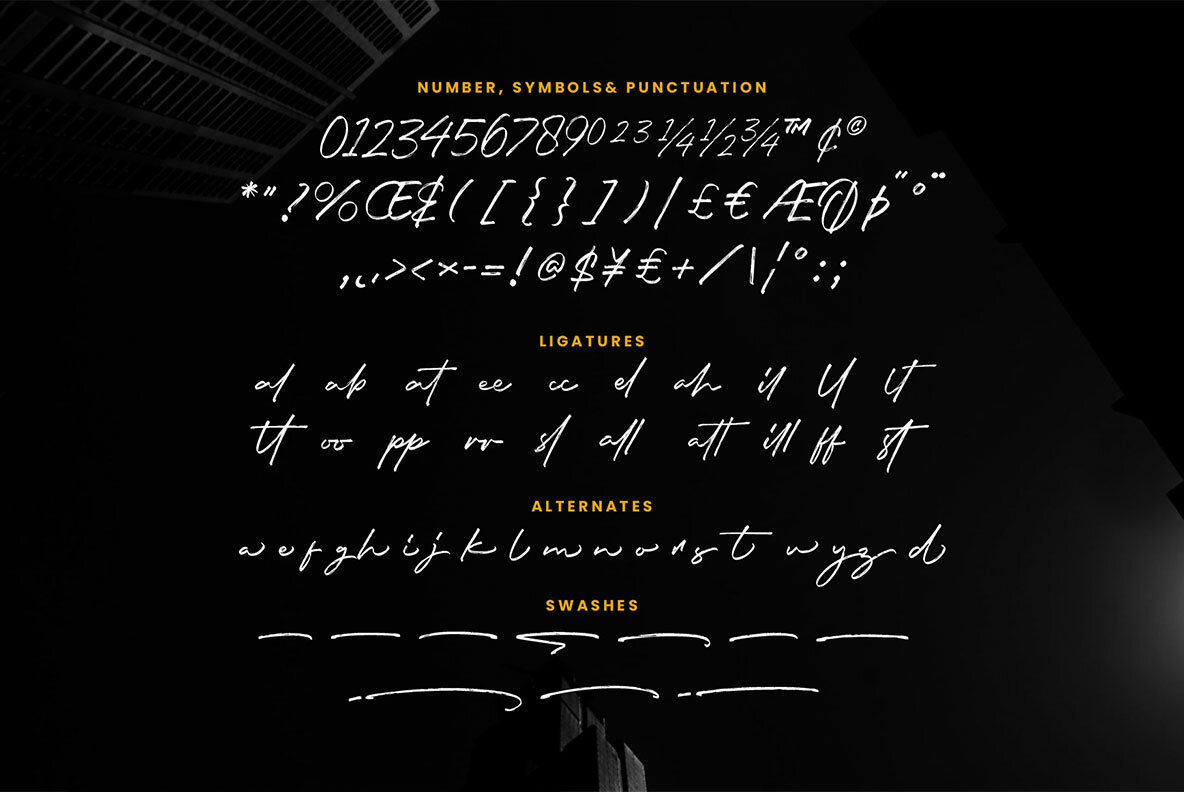 NUMBER, SYMBOLS& PUNCTUATION
0123456789⁰²³¼½¾™¢©
*"?%Œ₡([{}])|£€ÆØþ"°¨
,‚,><×-=!@$¥£+/\¦°:;
LIGATURES
al ab at ee cc el ah il ll lt
tt oo pp rr sl all att ill ff st
ALTERNATES
a e f g h i j k l m n o r s t u y z d
SWASHES